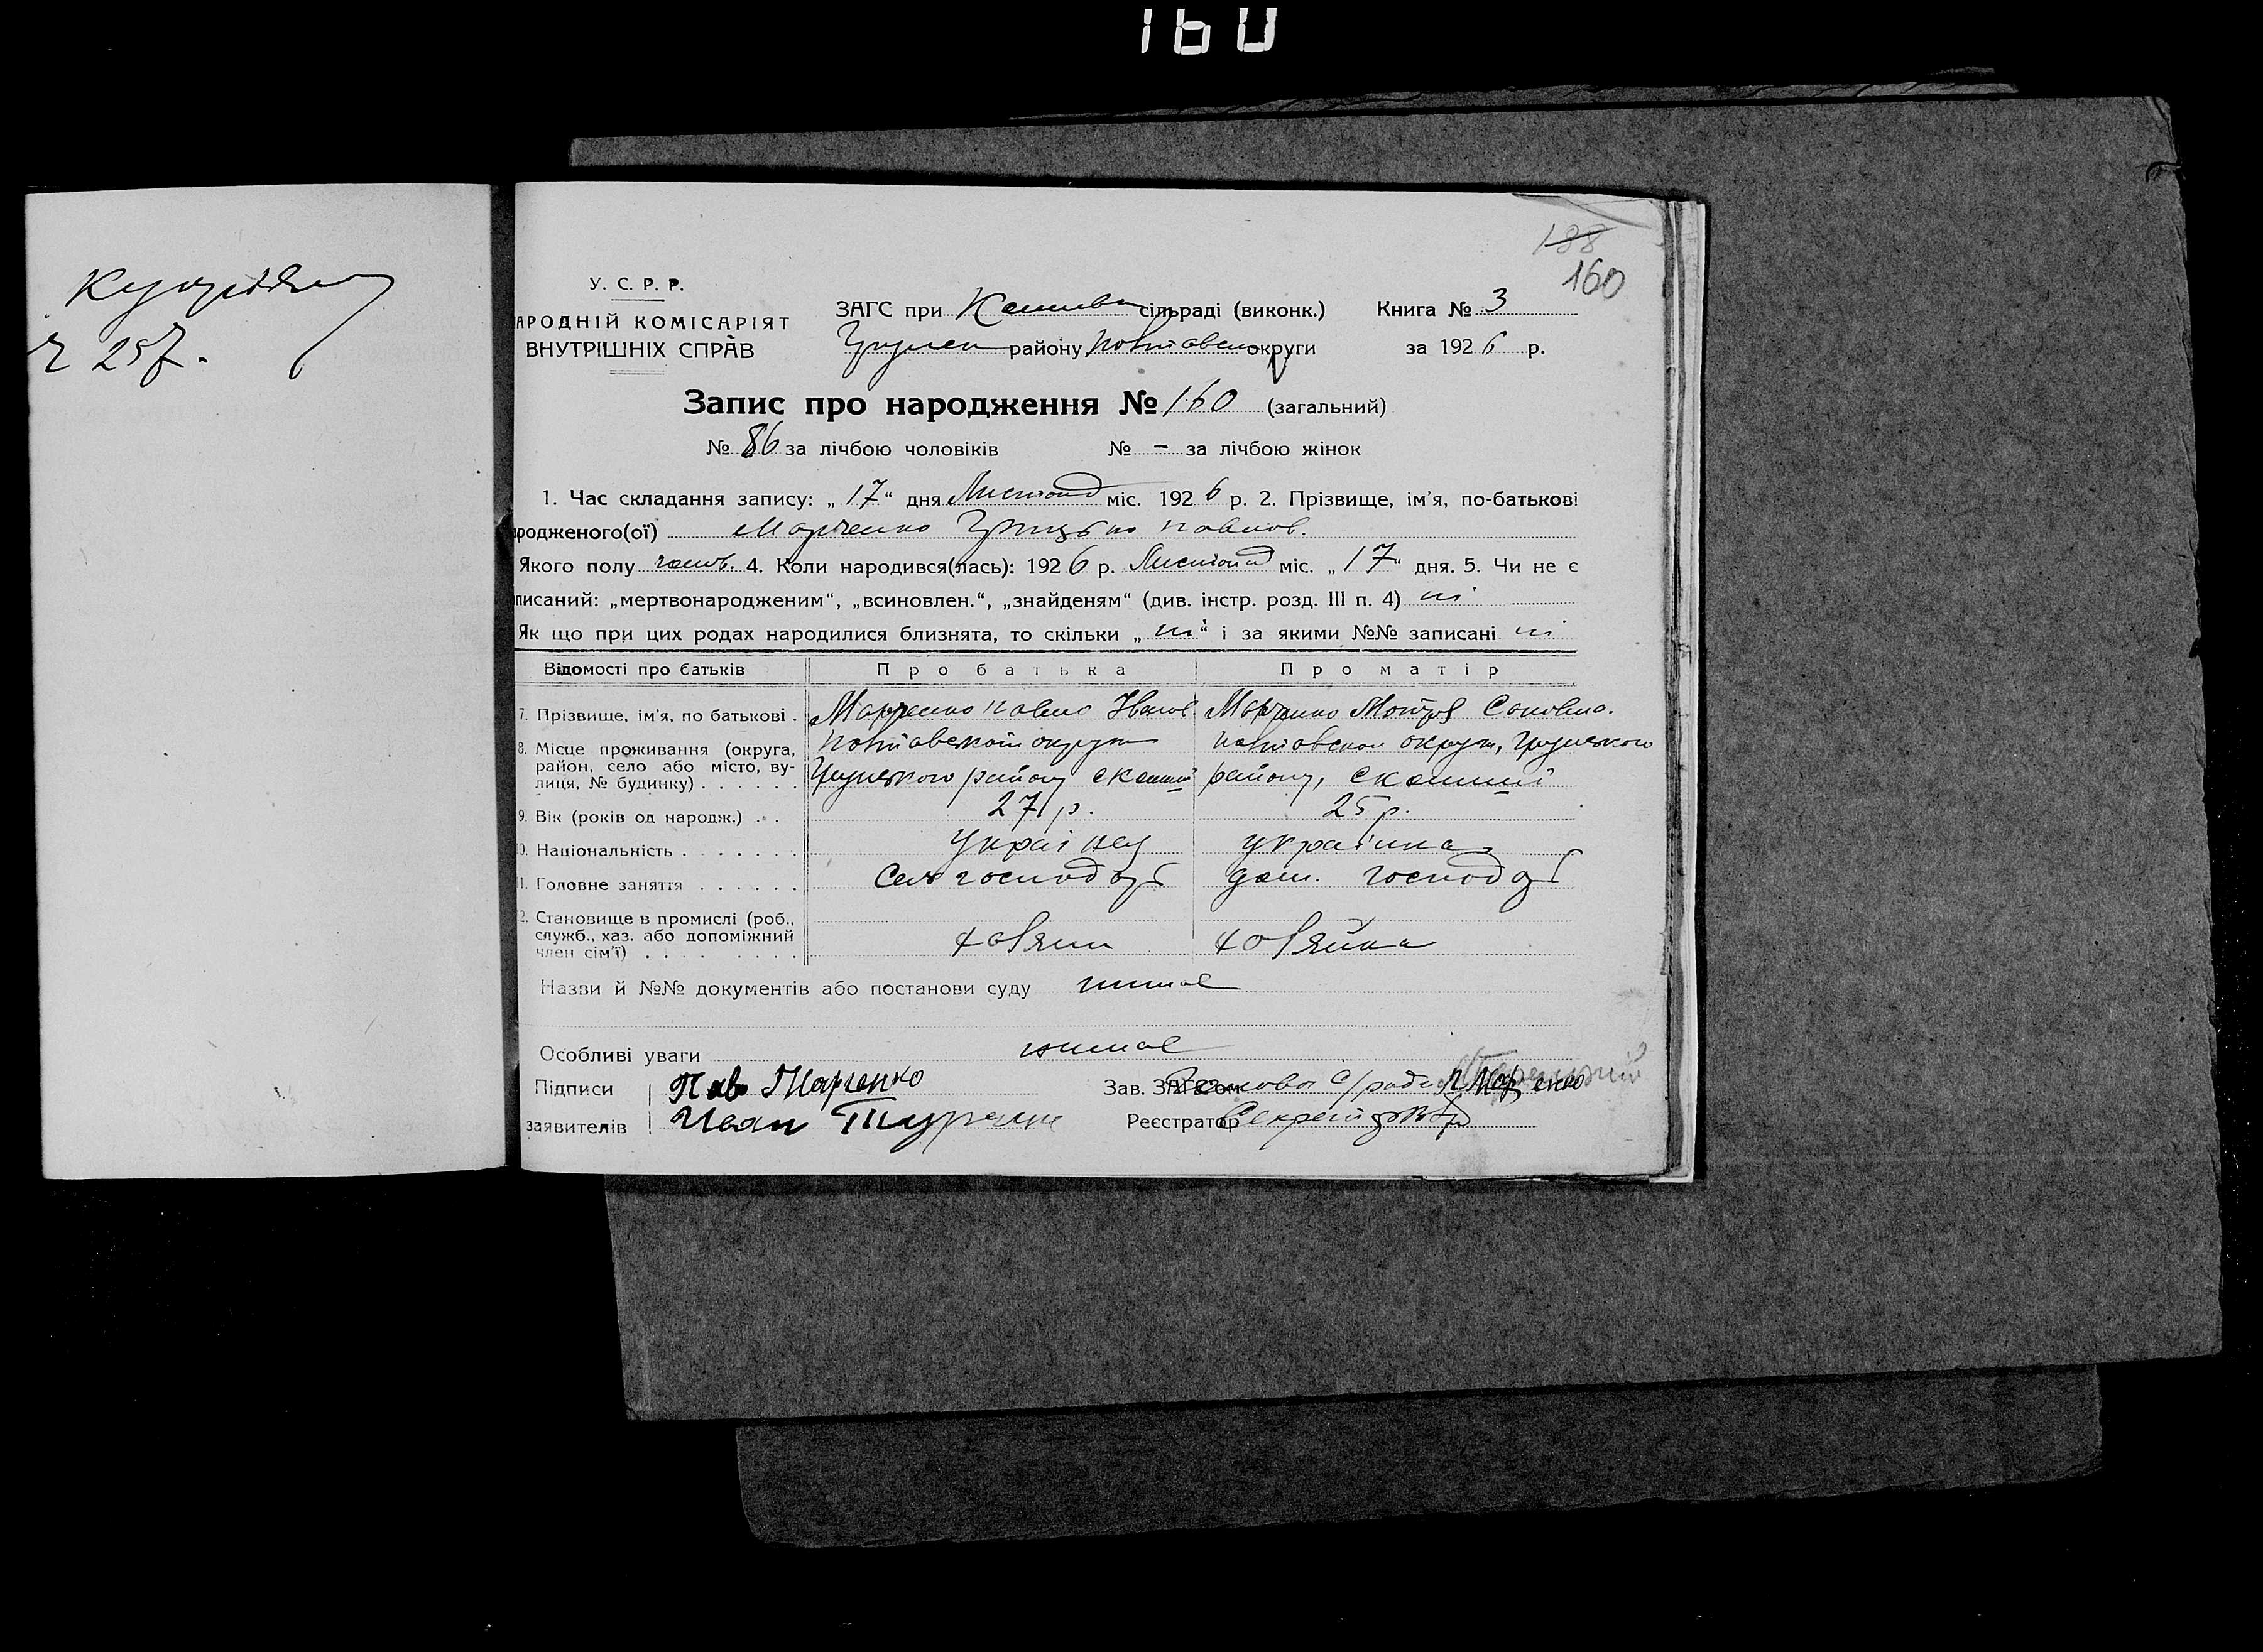 160
188
160
У. С. Р. Р.
АРОДНІЙ КОМІСАРІЯТ
ВНУТРІШНІХ СПРАВ
ЗАГС при сільраді (виконк.) Книга № 3
району Полтавськ округи за 1926 р.
Запис про народження № 160 (загальний)
№ 86 за лічбою чоловіків № – за лічбою жінок
1. Час складання запису: „17“ дня Листопад міс. 1926 р. 2. Прізвище, ім’я, по-батькові
родженого(ої) Марченко Грицько Павлов.
Якого полу чолов. 4. Коли народився(лась): 1926 р. Листопад міс. „17“ дня. 5. Чи не є
писаний: „мертвонародженим“, „всиновлен.“, „знайденям“ (див. інстр. розд. III п. 4) ні
Як що при цих родах народилися близнята, то скільки „ні“ і за якими №№ записані ні
Відомості про батьків Про батька Про матір
7. Прізвище, ім’я, по батькові . Марченко Павло Іванов Марченко Мотря
8. Місце проживання (округа, район, село або місто, вулиця, № будинку) . . . . . . Полтавської округи району Полтавської округи, району,
9. Вік (років од народж.) . . 27 р. 25 р.
0. Національність . . . . . . . українец українка
1. Головне заняття . . . . . . Сель господар дом. господар
2. Становище в промислі (роб., служб., хаз. або допоміжний член сім’ї) . . . . . . . . хозяин хозяйка
Назви й №№ документів або постанови суду нимає
Особливі уваги нимає
Підписи Пав Марченко Зав. ЗАГСом с/ради Марченко
заявителів Иван Реєстратор Секретар
25 7.